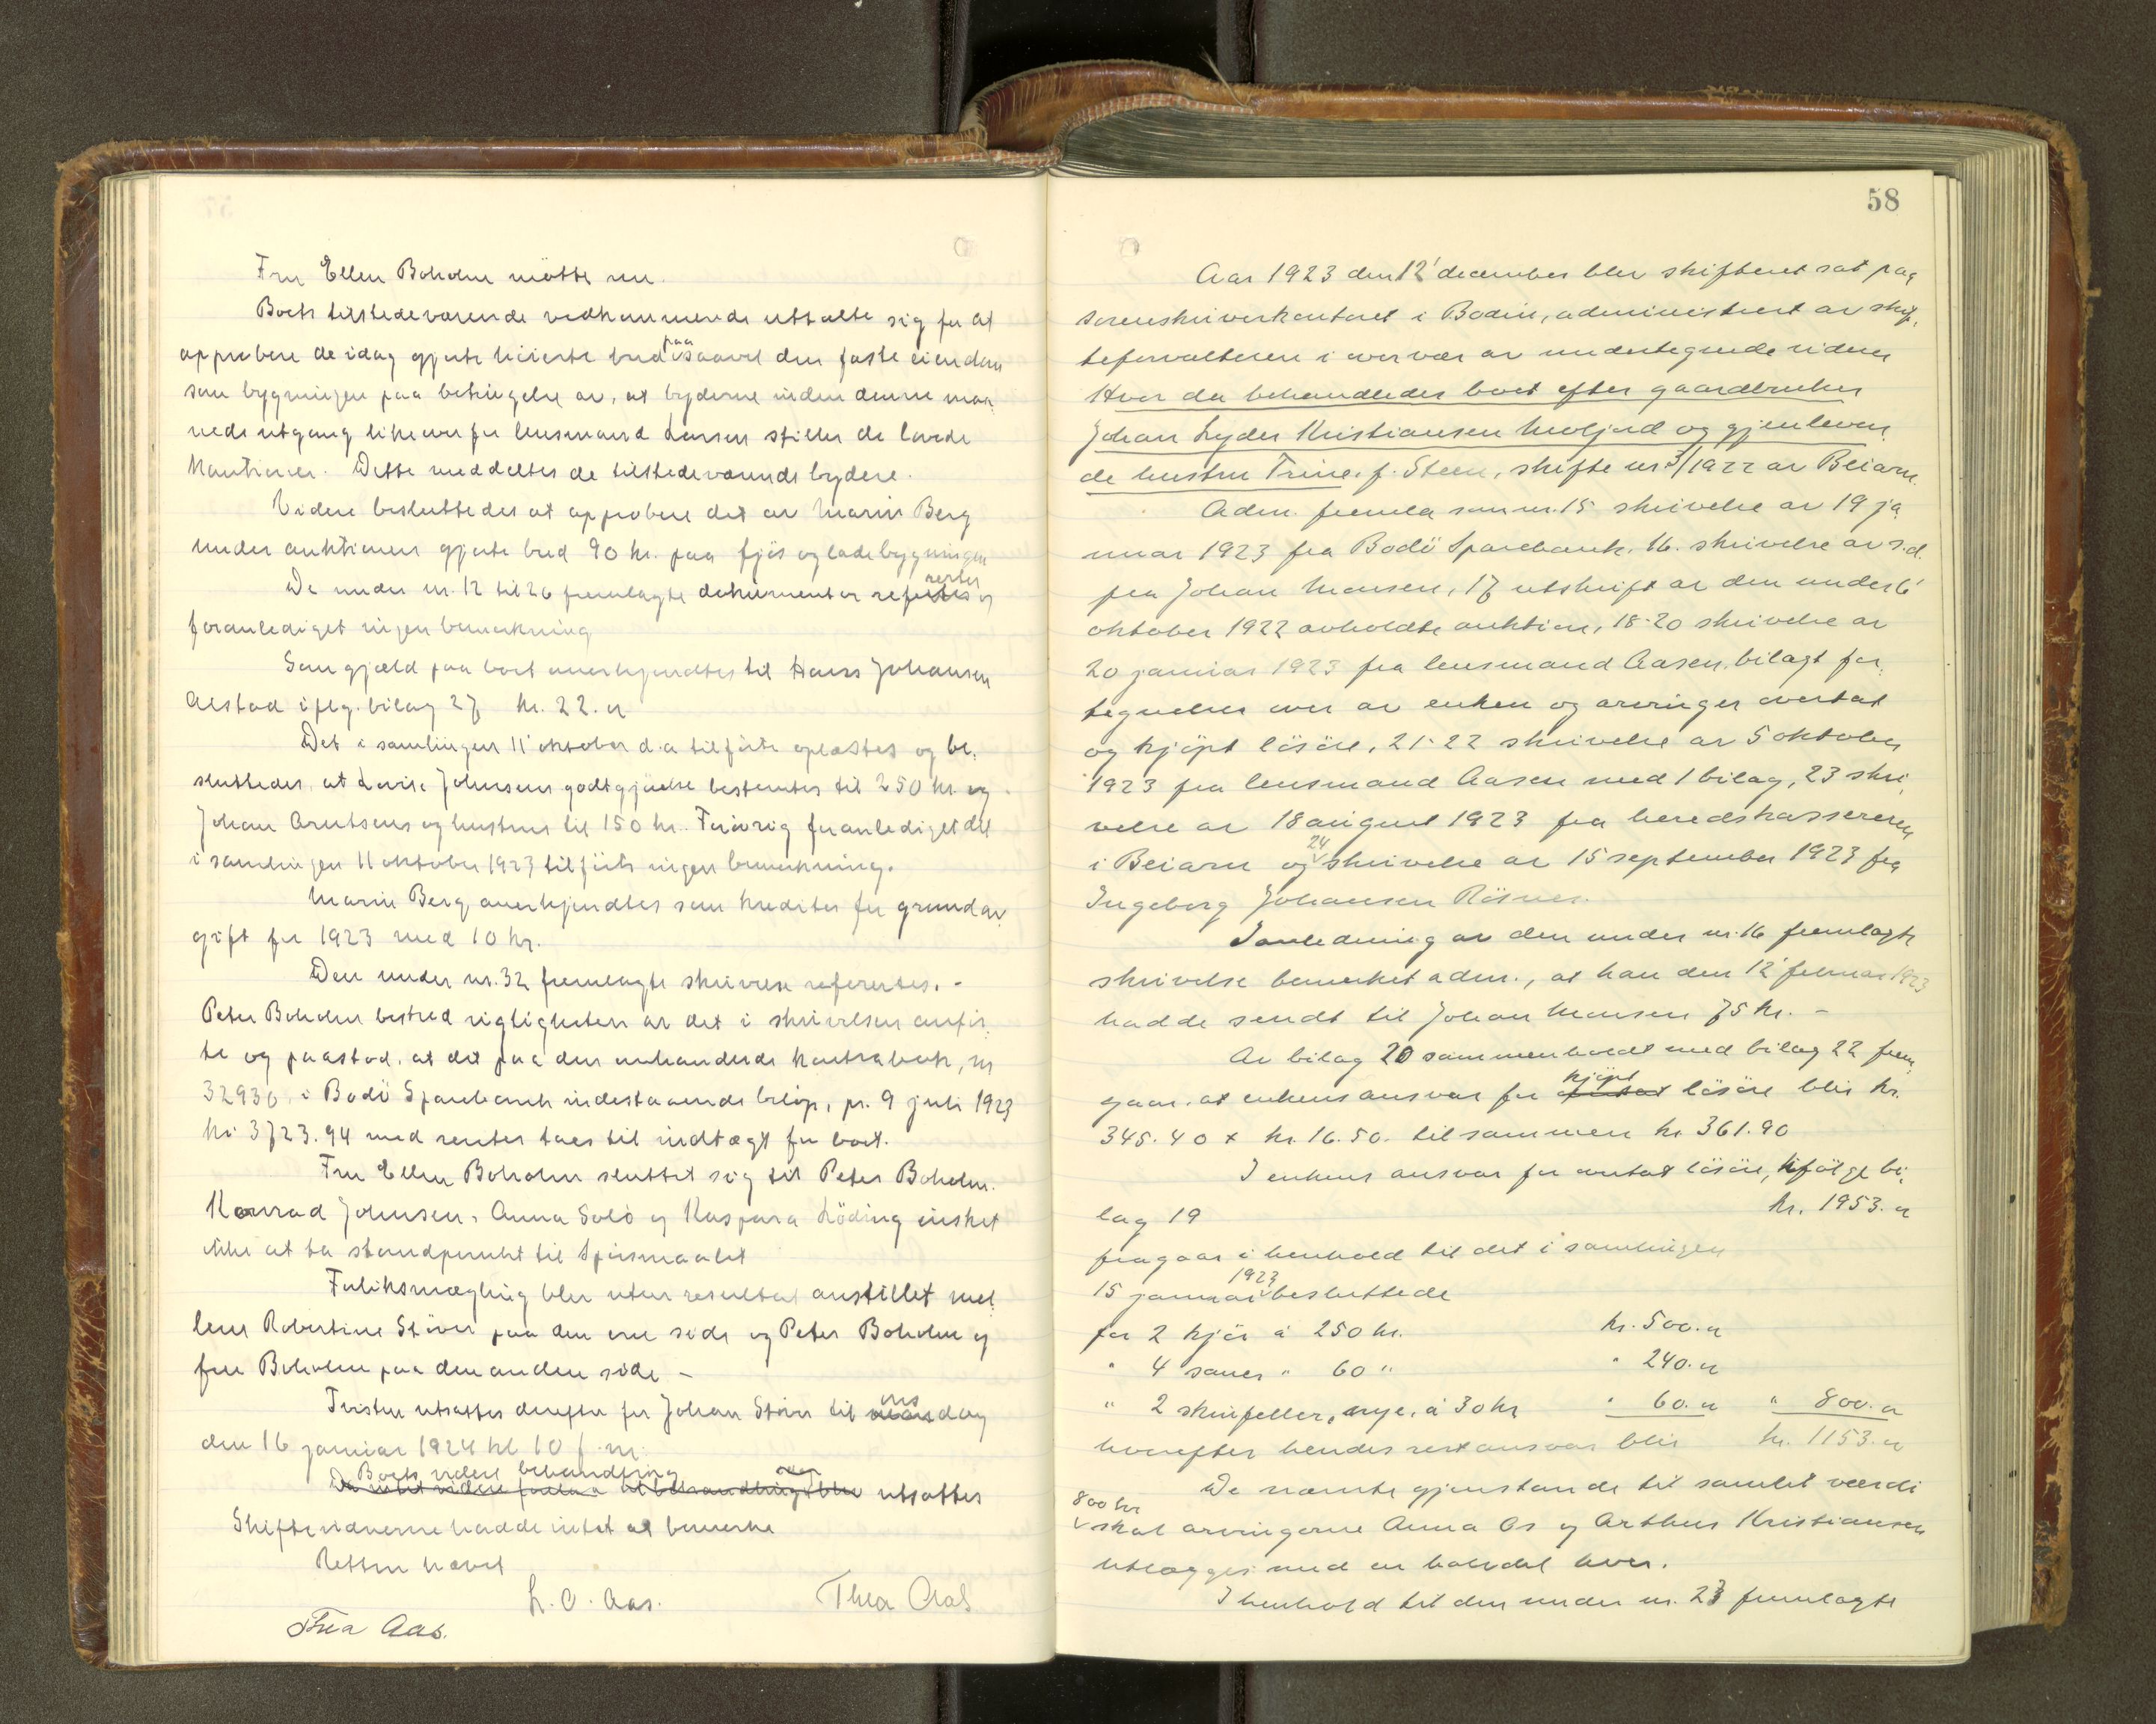 Fru Ellen Boholm mötte nu.
Boets tilstedeværende vedkommende uttalte sig for at
approbere de idag gjorte höieste bud paa saavel den faste eiendom
som bygningen paa betingelse av, at byderne inden denne maa-
neds utgang likeoverfor lensmand Larsen stiller de lovede
kautioner. Dette meddeltes de tilstedeværende bydere.
Videre besluttedes at approbere det av Marin Berg
under auktionen gjorte bud 90 kr. paa fjös og ladebygningen
De under nr. 12 til 26 fremlagte dokumenter referertes og
foranlediget ingen bemerkning
Som gjæld paa boet anerkjendtes til Hans Johansen
Alstad ifög. bilag 27 kr. 22.00
Det i samlingen 11' oktober d.a. tilförte oplæstes og be-
sluttedes, at Lovise Johnsens godtgjörelse bestemtes til 250 kr. og
Johan Arntsens og hustrus til 150 kr. Forövrig foranlediget det
i samlingen 11 oktober 1923 tilförte ingen bemerkning.
Marin Berg anerkjendtes som kreditor for grundav-
gift for 1923 med 10 kr.
Den under nr. 32 fremlagte skrivelse referertes. -
Peter Boholm bestred rigtigheten av det i skrivelsen anför-
te og paastod, at det paa den omhandlede kontrabok, nr
32930, i Bodö Sparebank indestaaende belöp, pr. 9 juli 1923
kr. 3723.94 med renter toges til indtægt for boet.
Fru Ellen Boholm sluttet sig til Peter Boholm.
Konrad Johnsen, Anna Solö og Kaspara Löding önsket
ikke at ta standpunkt til spörsmaalet
Forliksmægling blev uten resultat anstillet mel-
lem Robertine Stöver paa den ene side og Peter Boholm og
fru Boholm paa den anden side -
Tvisten utsattes derefter for Johan Stöver til ons dag
den 16 januar 1924 kl 10 f.m.
Boets videre behandling
utsattes
Skiftevidnerne hadde intet at bemerke
Retten hævet
L. O. Aas.
Thea Aas
Fria Aas.
58
Aar 1923 den 12' december blev skifteret sat paa
sorenskriverkontoret i Bodin, administrert av skif-
teforvalteren i overvær av undertegnede vidner
Hvor da behandledes boet efter gaardbruker
Johan Lyder Kristiansen Moljord og gjenleven-
de hustru Trine, f. Steen, skifte nr 3/1922 av Beiarn.
Adm. fremla som nr. 15 skrivelse av 19 ja-
nuar 1923 fra Bodö Sparebank, 16. skrivelse av s.d.
fra Johan Monsen, 17 utskrift av den under 6'
oktober 1922 avholdte auktion, 18-20 skrivelse av
20 januar 1923 fra lensmand Aasen, bilagt for-
tegnelser over av enken og arvinger overtat
og kjöpt lösöre, 21-22 skrivelse av 5 oktober
1923 fra lensmand Aasen med 1 bilag, 23 skri-
velse av 18 august 1923 fra herredskassereren
i Beiarn og 24 skrivelse av 15 september 1923 fra
Ingeborg Johansen Rösnes.
I anledning av den under nr. 16 fremlagte
skrivelse bemerket adm., at han den 12' februar 1923
hadde sendt til Johan Monsen 75 kr. -
Av bilag 20 sammenholdt med bilag 22 frem-
gaar, at enkens ansvar for kjöpt lösöre blir kr.
345.40 + kr. 16.50. tilsammen kr 361.90
I enkens ansvar for overtat lösöre, ifölge bi-
lag 19 kr. 1953.00
fragaar i henhold til det i samlingen
15 januar 1923 besluttede
for 2 kjör á 250 kr. kr. 500.00
" 4 sauer " 60 " " 240.00
" 2 skinfeller, nye, á 30 kr " 60.00 " 800.00
hvorefter hendes restansvar blir kr. 1153.00
De nævnte gjenstande til samlet værdi
800 kr skal arvingerne Anna Os og Arthur Kristiansen
utlægges med en halvdel hver.
I henhold til den under nr. 23 fremlagte